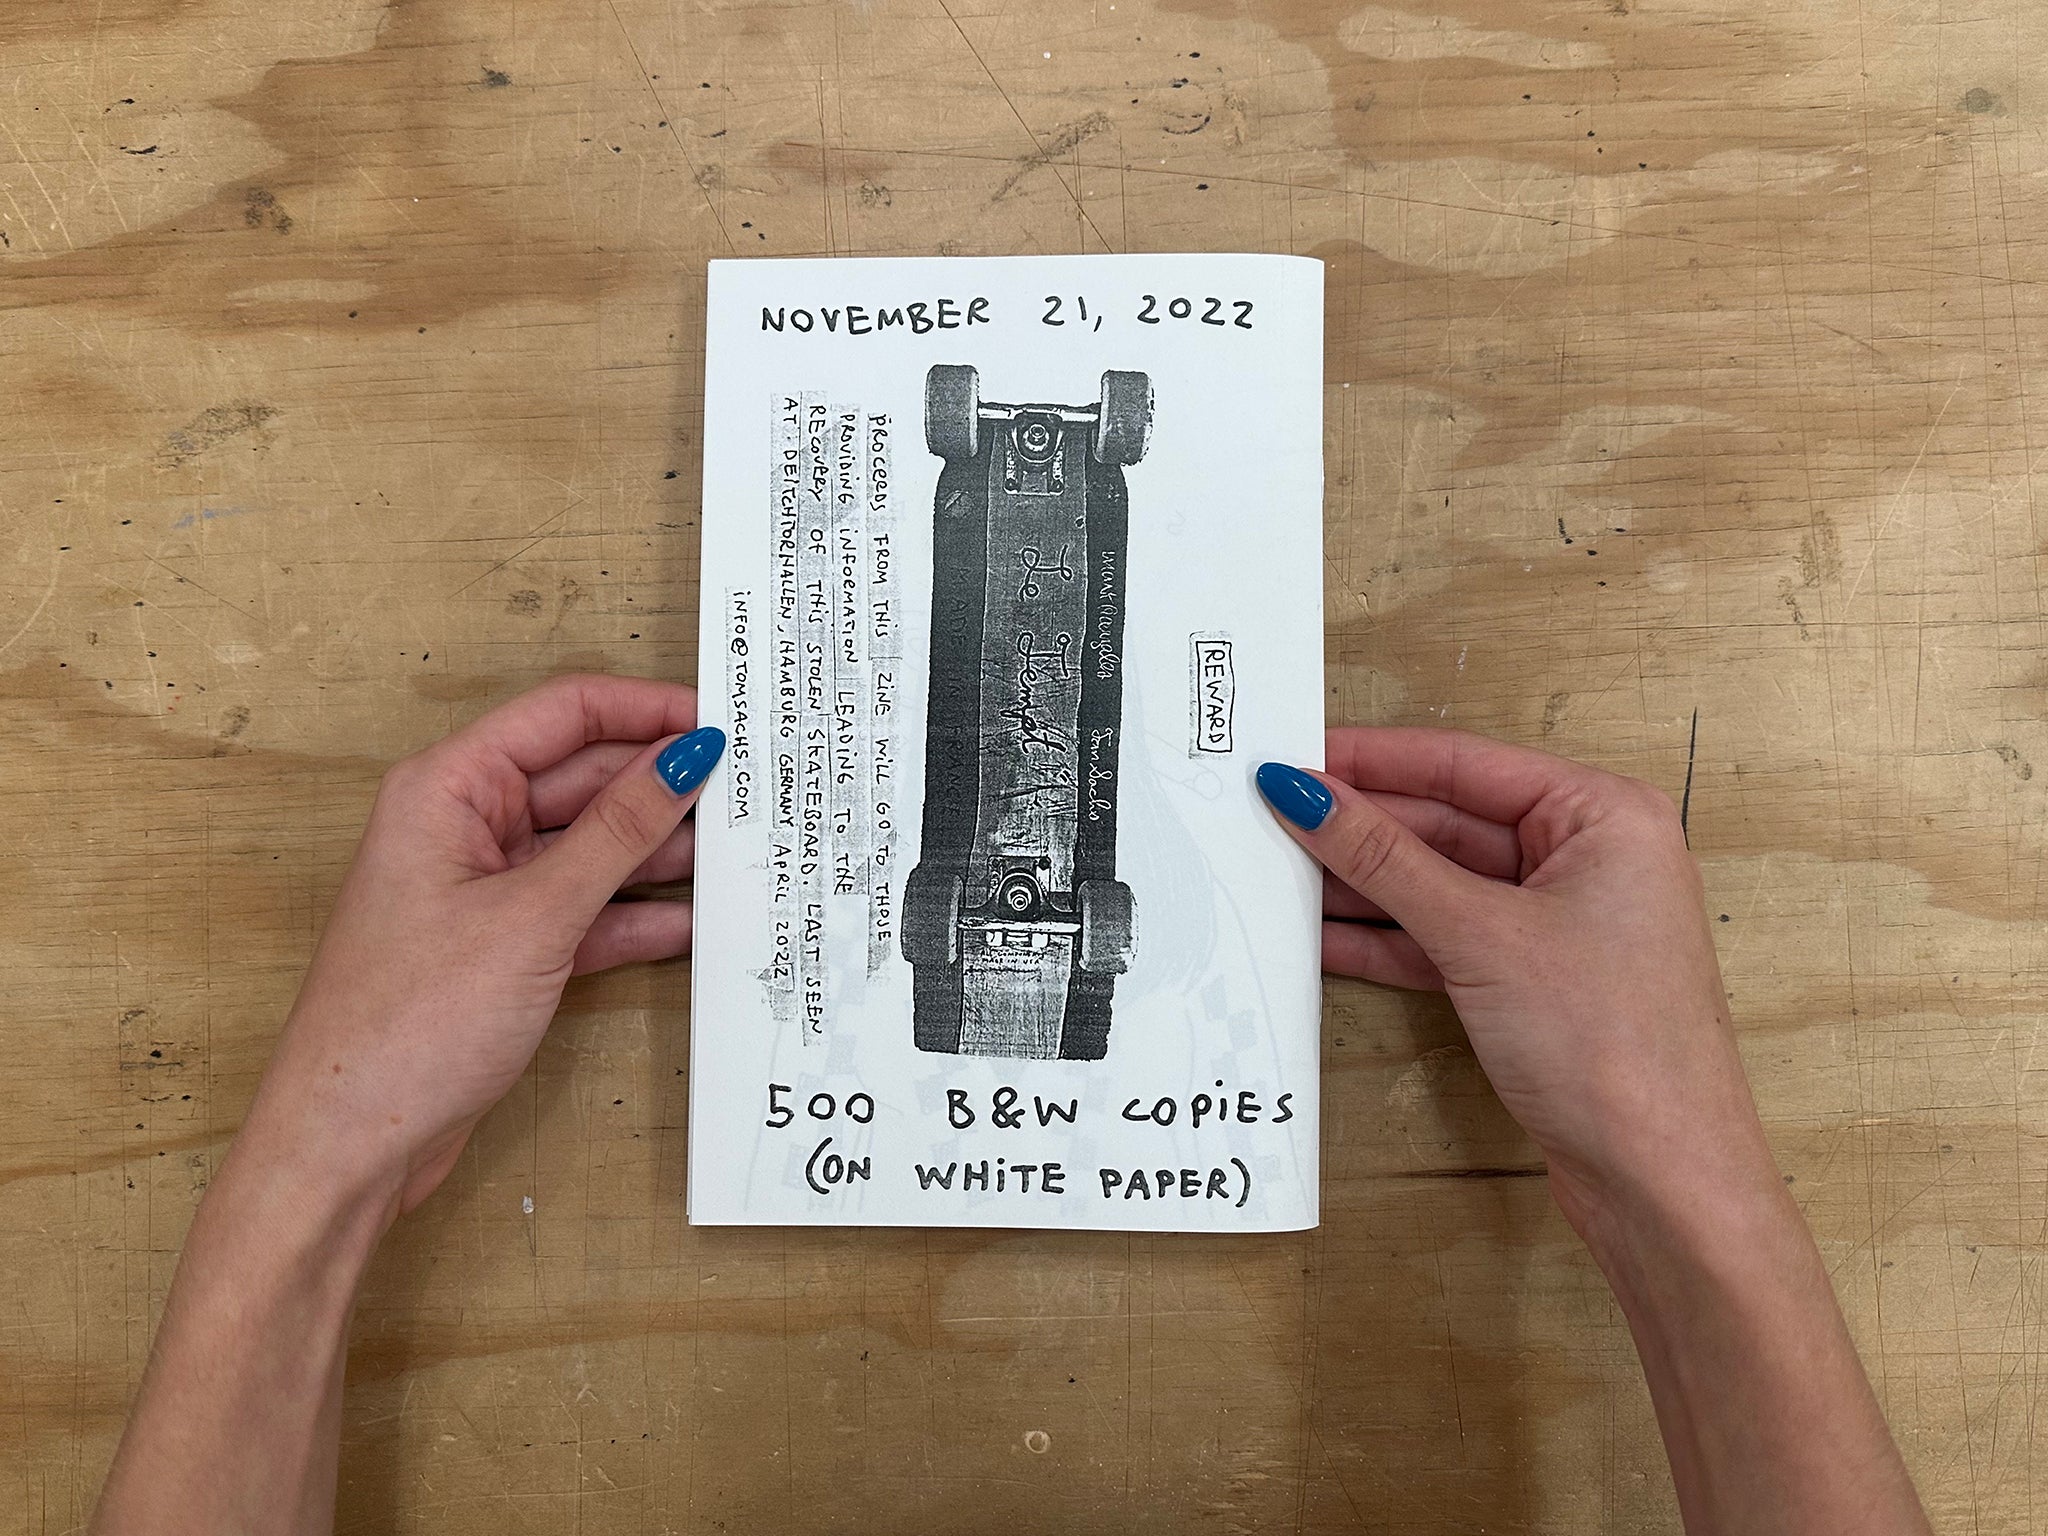 NOVEMBER 21, 2022
REWARD
Mark Gonzales Tom Sachs
Le Tempt
MADE IN FRANCE
ALL COMPONENTS
MADE IN USA
PROCEEDS FROM THIS ZINE WILL GO TO THOSE
PROVIDING INFORMATION LEADING TO THE
RECOVERY OF THIS STOLEN SKATEBOARD. LAST SEEN
AT. DEITCHTORHALLEN, HAMBURG GERMANY APRIL 2022
INFO@TOMSACHS.COM
500 B&W COPIES
(ON WHITE PAPER)